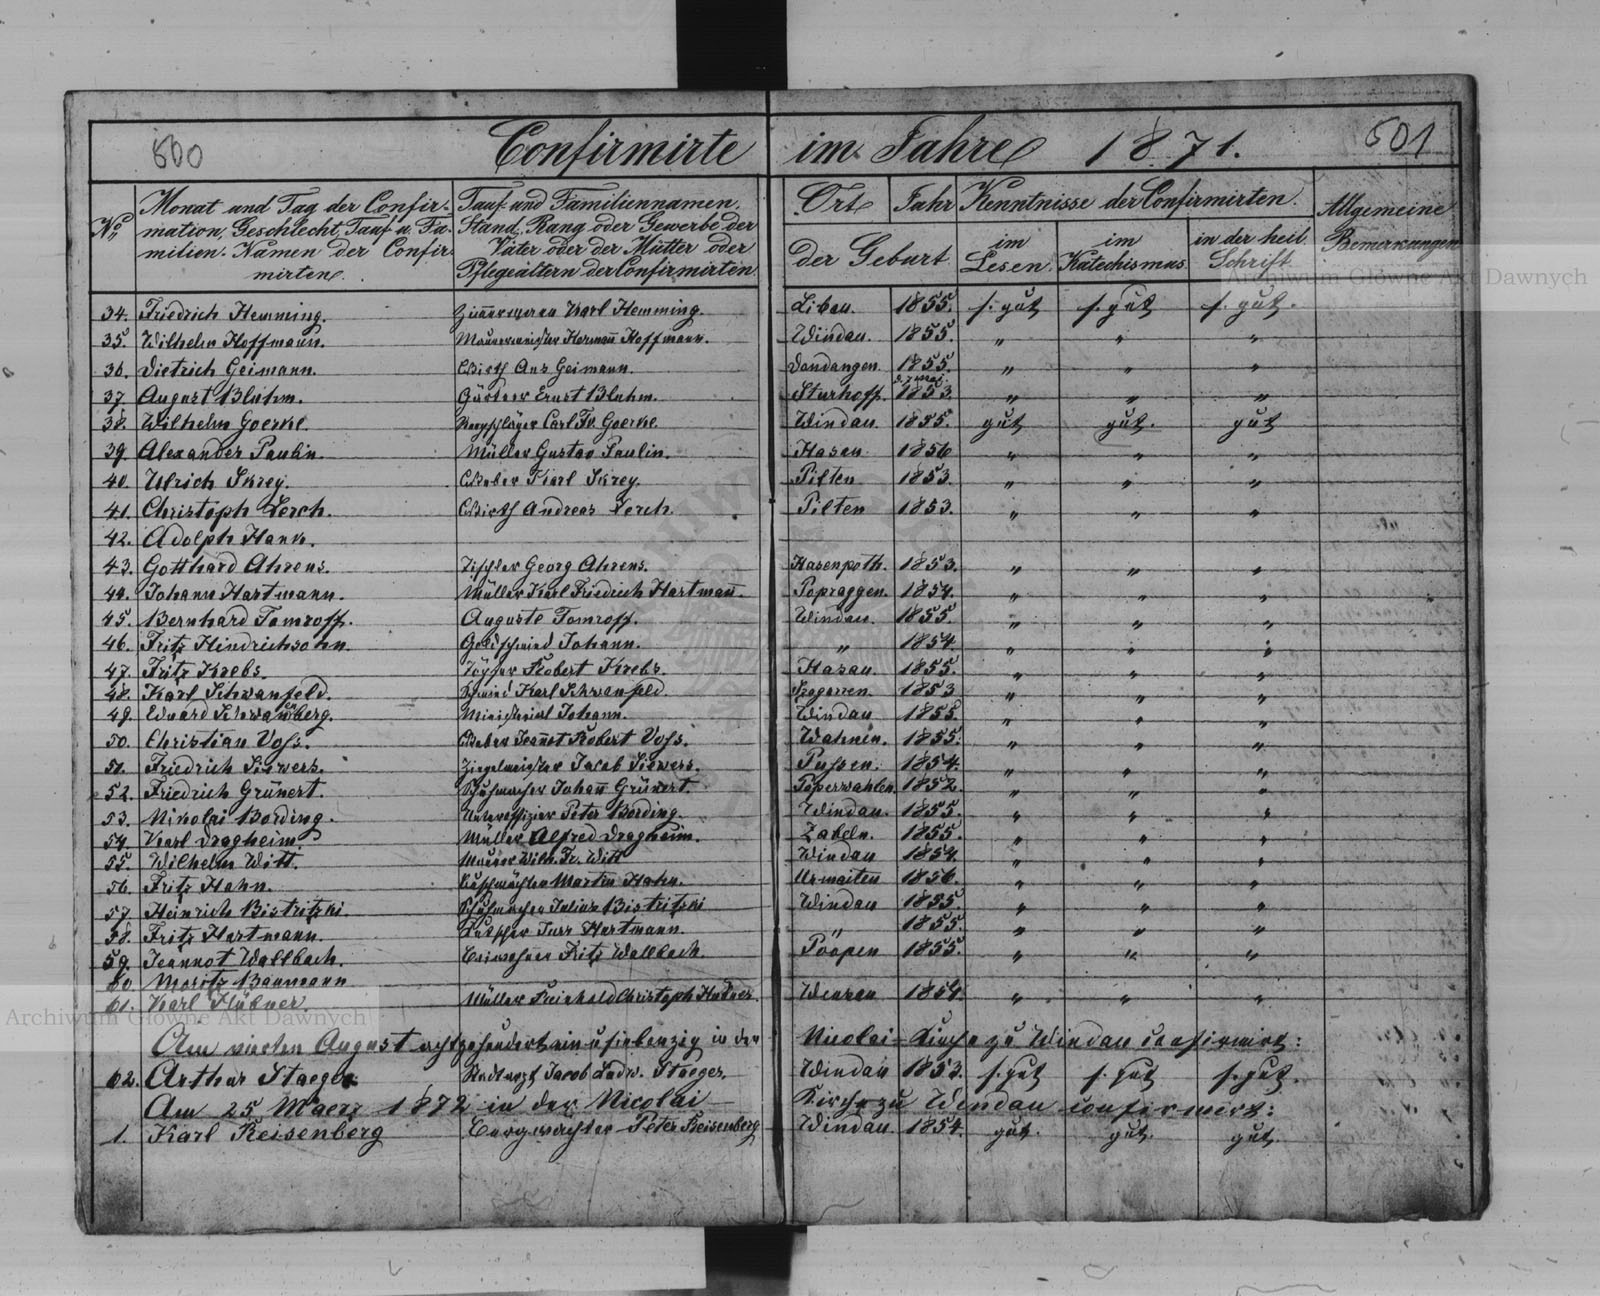 500
Confirmirte im Jahre 1871.
501
No
Monat und Tag der Confir-
mation, Geschlecht, Tauf u. Fa-
milien-Namen der Confir-
mirten.
Tauf und Familiennamen,
Stand, Rang oder Gewerbe der
Väter oder der Mütter oder
Pflegeältern der Confirmirten
Ort
Jahr
der Geburt
Kenntnisse der Confirmirten.
im
Lesen
im
Katechismus
in der heil
Schrift
Allgemeine
Bemerkungen
34. Friedrich Hemming. Karl Hemming. Libau. 1855. s. gut s. gut s. gut.
35. Wilhelm Hoffmann. Maurermeister Hermann Hoffmann. Windau. 1855. " " "
36. Dietrich Geimann. Wirth Ans Geimann. Dondangen. 1855. " " "
37 August Bluhm. Gärtner Ernst Bluhm. Sturhoff. 1853. " " "
38. Wilhelm Goerke. Carl Fr. Goerke. Windau. 1855. gut gut. gut
39. Alexander Paulin. Müller Gustav Paulin. Hasau. 1856 " " "
40. Ulrich Skrey. Weber Karl Skrey. Pilten 1853. " " "
41. Christoph Lerch. Wirth Andreas Lerch. Pilten 1853. " " "
42. Adolph Hank.
43. Gotthard Ahrens. Tischler Georg Ahrens. Hasenpoth. 1853. " " "
44. Johann Hartmann. Müller Karl Friedrich Hartmann. Popraggen. 1854. " " "
45. Bernhard Tomroff. Auguste Tomroff. Windau. 1855. " " "
46. Fritz Hindrichsohn. Goldschmied Johann. " 1854. " " "
47. Fritz Krebs. Töpfer Robert Krebs. Hasau. 1855. " " "
48. Karl Schwanfeld. Schmied Karl Schwanfeld. 1853 " " "
49. Eduard Johann. Windau 1855. " " "
50. Christian Voss. Weber Jeannot Robert Voss. Wahnen. 1855. " " "
51. Friedrich Siewers. Ziegelmeister Jacob Siewers. Pussen. 1854. " " "
52. Friedrich Grünert. Schuhmacher Johann Grünert. Poperwahlen. 1852. " " "
53. Nikolai Bording. Unteroffizier Peter Bording. Windau. 1855. " " "
54. Karl Dragheim. Müller Alfred Dragheim. Zabeln. 1855. " " "
55. Wilhelm Witt. Maurer Wilh. Fr. Witt Windau 1854. " " "
56. Fritz Hahn. Buschwächter Martin Hahn. Urmaiten 1856. " " "
57. Heinrich Bistritzki Schuhmacher Julius Bistritzki Windau 1855. " " "
58. Fritz Hartmann. Jurr Hartmann. " 1855. " " "
59. Jeannot Wallbach. Fritz Wallbach. Pöopen 1855. " " "
60 Moritz Baumann
61. Karl Hübner. Müller Reinhold Christoph Hübner. 1854. " " "
Am vierten August achtzehnhundert ein u siebenzig in der Nicolai-Kirche zu Windau confirmirt:
62. Arthur Staeger Jacob Ludw. Staeger. Windau 1853. s. gut s. gut s. gut.
Am 25 Maerz 1872 in der Nicolai- Kirche zu Windau confirmirt:
1. Karl Reisenberg Peter Reisenberg Windau 1854. gut. gut. gut.
Archiwum Główne Akt Dawnych
Archiwum Główne Akt Dawnych